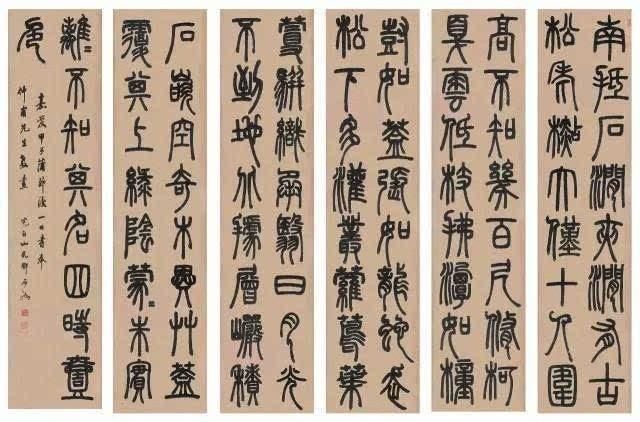 南抵石澗夾澗有古
松老杉大僅十人圍
高不知幾百尺脩柯
戛雲低枝拂潭如幢
尌如蓋張如龍蛇走
松下多灌叢蘿蔦葉
蔓駢織承翳日月光
不到地北據層巖積
石嵌空奇木異艸蓋
覆其上綠陰蒙=朱實
離=不知其名四時壹
色
嘉慶甲子蒲節後一日書奉
仲甫先生教 完白山民鄧石如